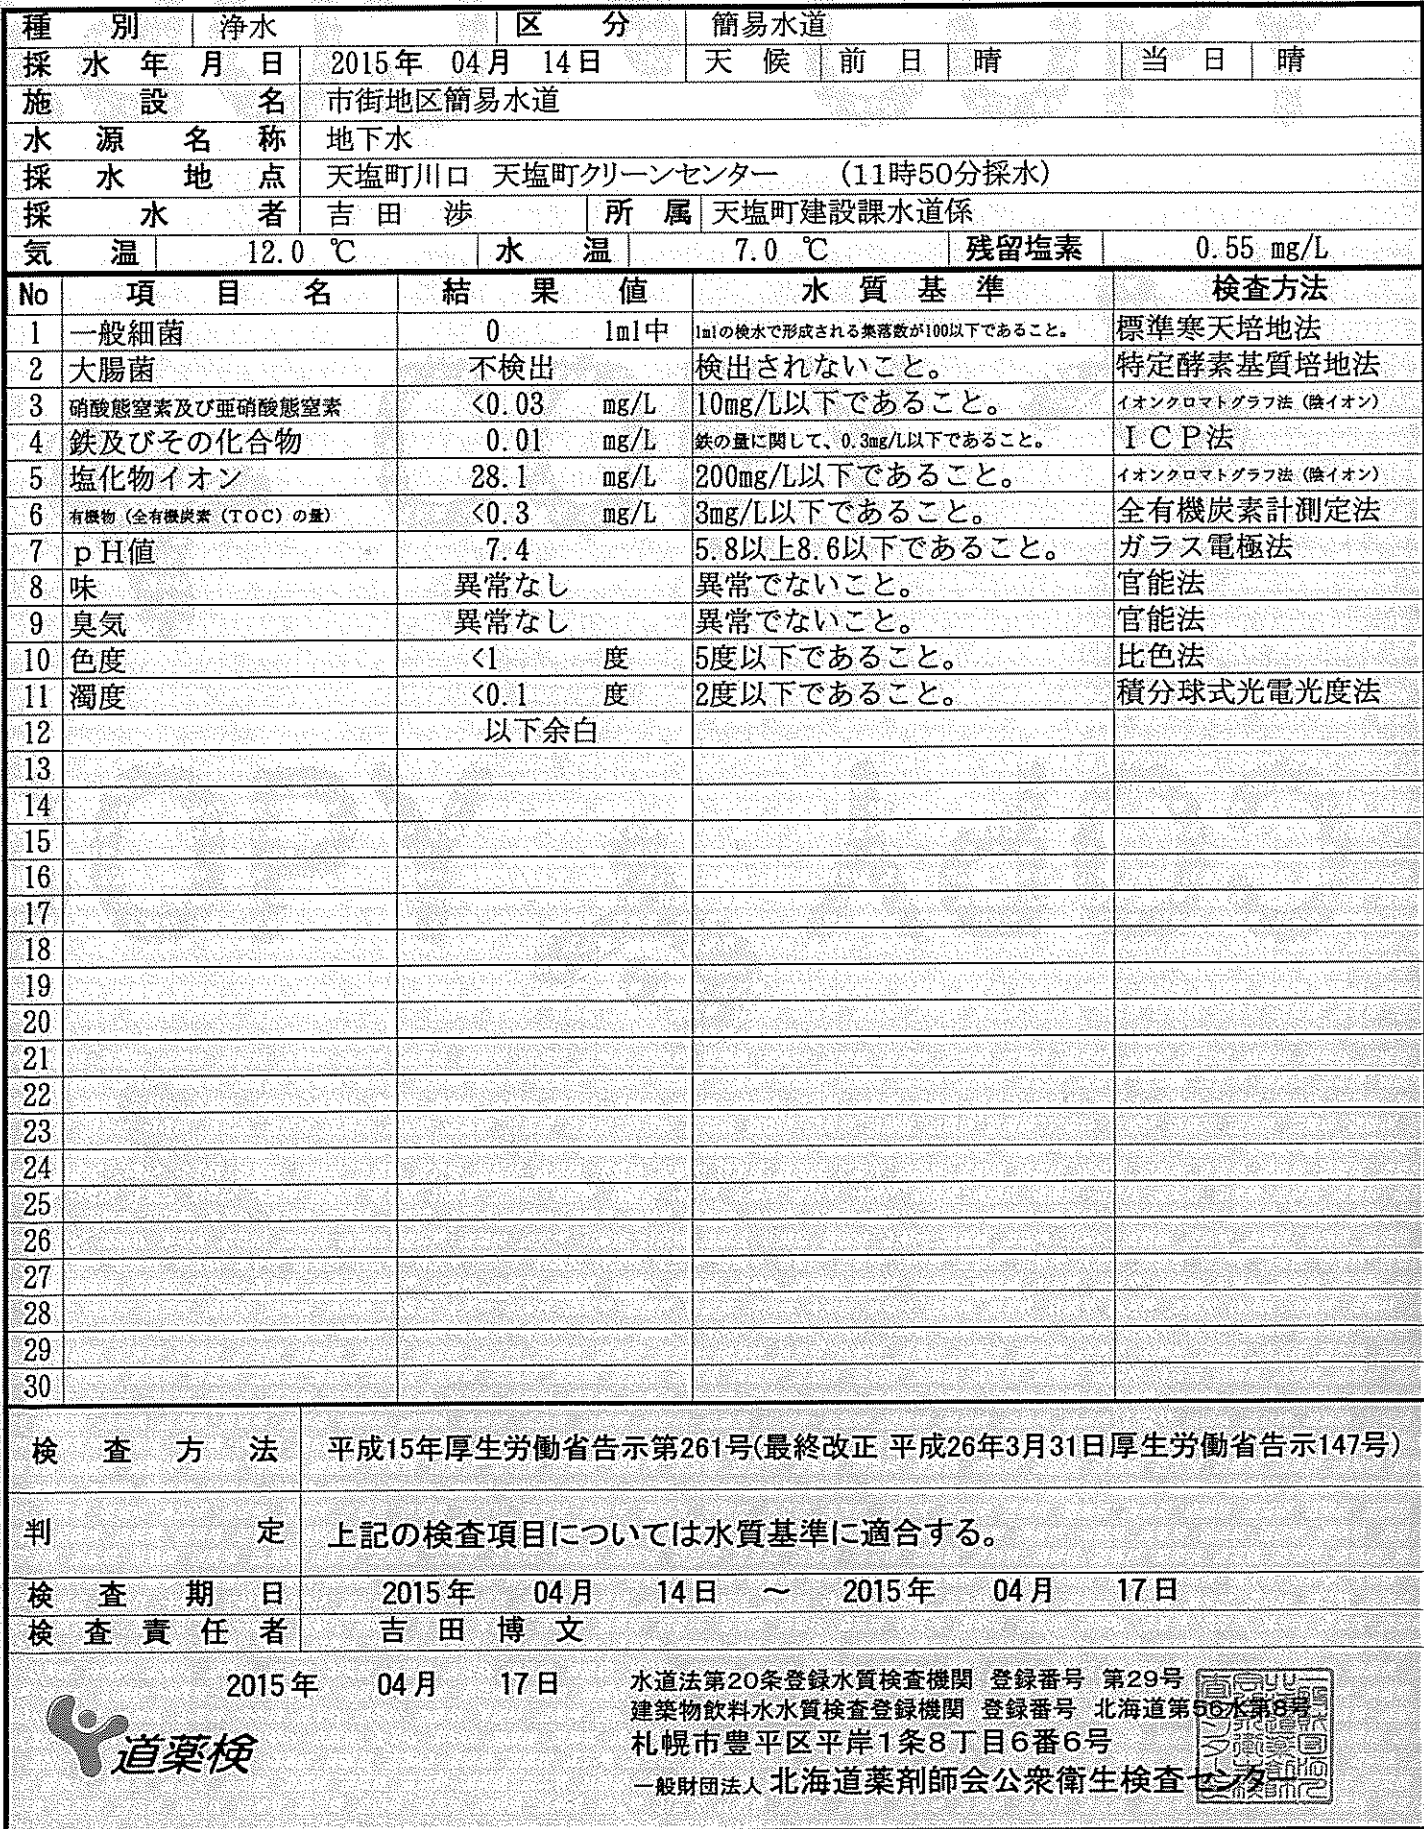 種別 浄水 区分 簡易水道
採水年月日 2015年 04月 14日 天候 前日 晴 当日 晴
施設名 市街地区簡易水道
水源名称 地下水
採水地点 天塩町川口 天塩町クリーンセンター (11時50分採水)
採水者 吉田 渉 所属 天塩町建設課水道係
気温 12.0 ℃ 水温 7.0 ℃ 残留塩素 0.55 mg/L
No 項目名 結果値 水質基準 検査方法
1 一般細菌 0 1ml中 1mlの検水で形成される集落数が100以下であること。 標準寒天培地法
2 大腸菌 不検出 検出されないこと。 特定酵素基質培地法
3 硝酸態窒素及び亜硝酸態窒素 <0.03 mg/L 10mg/L以下であること。 イオンクロマトグラフ法（陰イオン）
4 鉄及びその化合物 0.01 mg/L 鉄の量に関して、0.3mg/L以下であること。 ＩＣＰ法
5 塩化物イオン 28.1 mg/L 200mg/L以下であること。 イオンクロマトグラフ法（陰イオン）
6 有機物（全有機炭素（ＴＯＣ）の量） <0.3 mg/L 3mg/L以下であること。 全有機炭素計測定法
7 ｐＨ値 7.4 5.8以上8.6以下であること。 ガラス電極法
8 味 異常なし 異常でないこと。 官能法
9 臭気 異常なし 異常でないこと。 官能法
10 色度 <1 度 5度以下であること。 比色法
11 濁度 <0.1 度 2度以下であること。 積分球式光電光度法
12 以下余白
13
14
15
16
17
18
19
20
21
22
23
24
25
26
27
28
29
30
検査方法 平成15年厚生労働省告示第261号(最終改正 平成26年3月31日厚生労働省告示147号)
判定 上記の検査項目については水質基準に適合する。
検査期日 2015年 04月 14日 ～ 2015年 04月 17日
検査責任者 吉田博文
2015年 04月 17日
水道法第20条登録水質検査機関 登録番号 第29号
建築物飲料水水質検査登録機関 登録番号 北海道第56水第8号
札幌市豊平区平岸1条8丁目6番6号
一般財団法人 北海道薬剤師会公衆衛生検査センター
道薬検